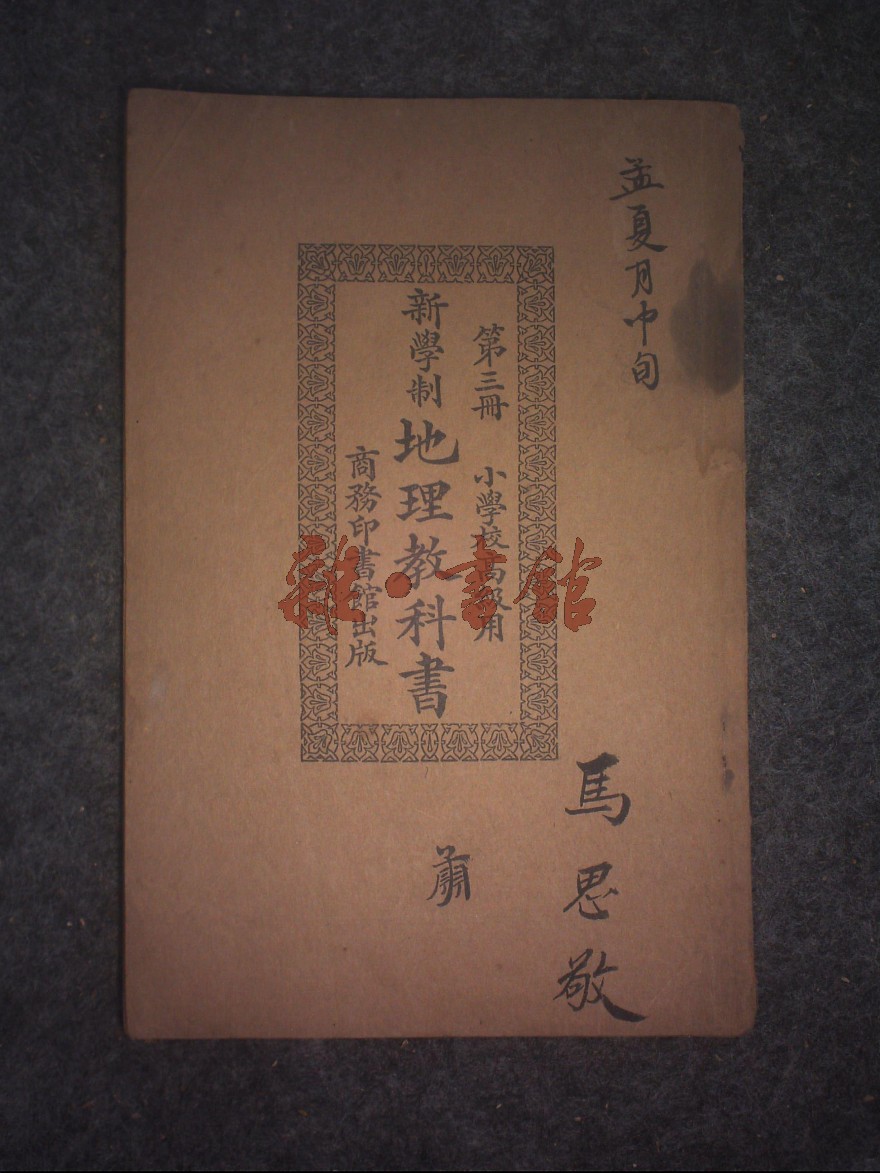 孟夏月中旬
第三冊 小學校高級用
新學制地理教科書
商務印書館出版
雜·書館
馬思敬